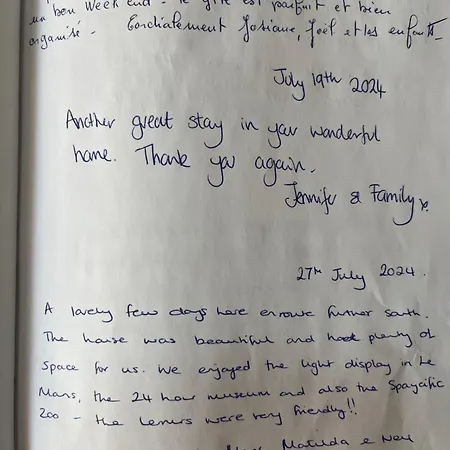 un bon week end. le gîte est parfait et bien
organisé. Cordialement Josiane, Joël et les enfants
July 19th 2024
Another great stay in your wonderful
home. Thank you again.
Jennifer & Family x.
27th July 2024.
A lovely few days here enroute further south.
The house was beautiful and had plenty of
space for us. We enjoyed the light display in Le
Mans, the 24 hour museum and also the Spaycific
Zoo - the lemurs were very friendly!!
Matilda e Neil